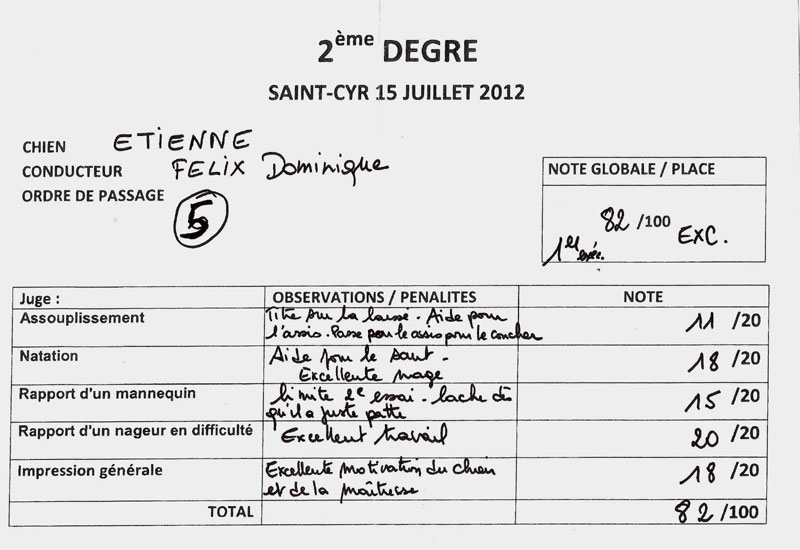 2ème DEGRE
SAINT-CYR 15 JUILLET 2012
CHIEN ETIENNE
CONDUCTEUR FELIX Dominique
ORDRE DE PASSAGE
5
NOTE GLOBALE / PLACE
82 /100 EXC.
1er
Juge : OBSERVATIONS / PENALITES NOTE
Assouplissement
Titre sur la laisse - Aide pour
l'assis. Passe pour le assis pour le coucher
11 /20
Natation
Aide pour le saut -
Excellente nage
18 /20
Rapport d'un mannequin
limite 2e essai - lache dès
qu'il a juste patte
15 /20
Rapport d'un nageur en difficulté
Excellent travail
20 /20
Impression générale
Excellente motivation du chien
et de la maîtresse
18 /20
TOTAL 82 /100